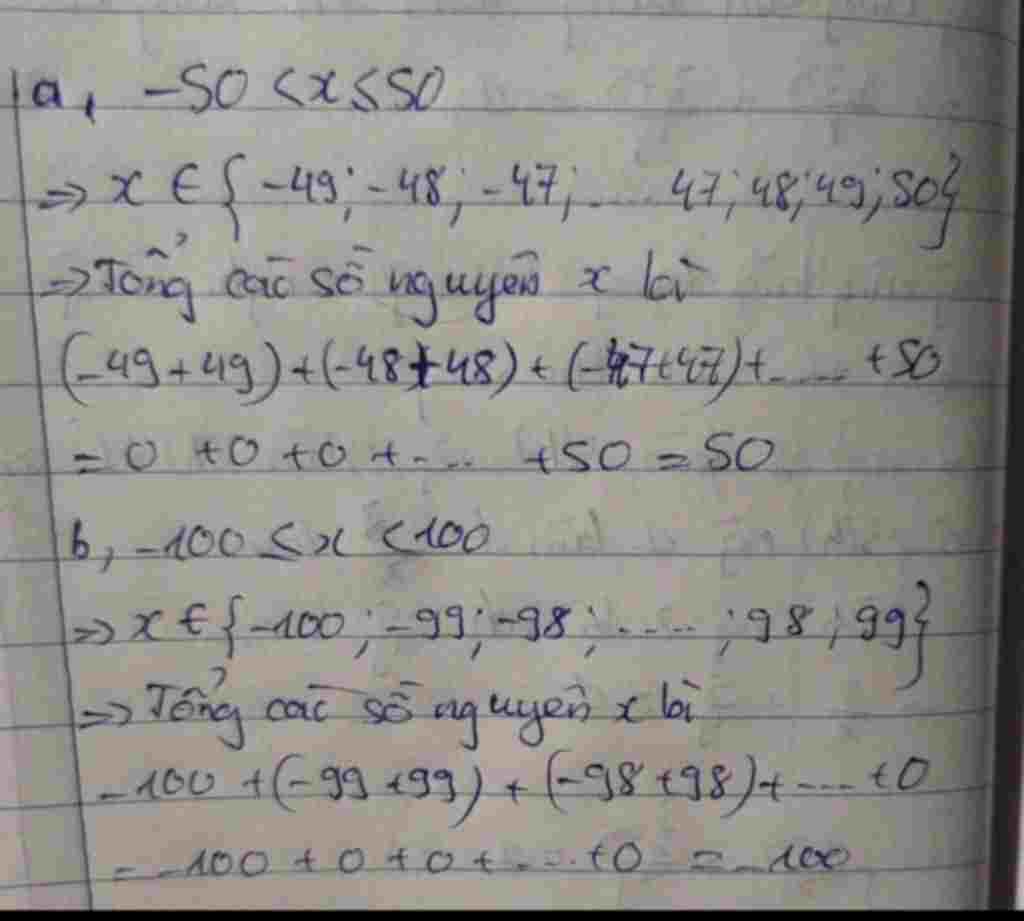 a, -50 < x ≤ 50
=> x ∈ {-49; -48; -47; .... 47; 48; 49; 50}
=> Tổng các số nguyên x là
(-49 + 49) + (-48 + 48) + (-47 + 47) + ..... + 50
= 0 + 0 + 0 + .... + 50 = 50
b, -100 ≤ x < 100
=> x ∈ {-100; -99; -98; .....; 98; 99}
=> Tổng các số nguyên x là
-100 + (-99 + 99) + (-98 + 98) + .... + 0
= -100 + 0 + 0 + .... + 0 = -100